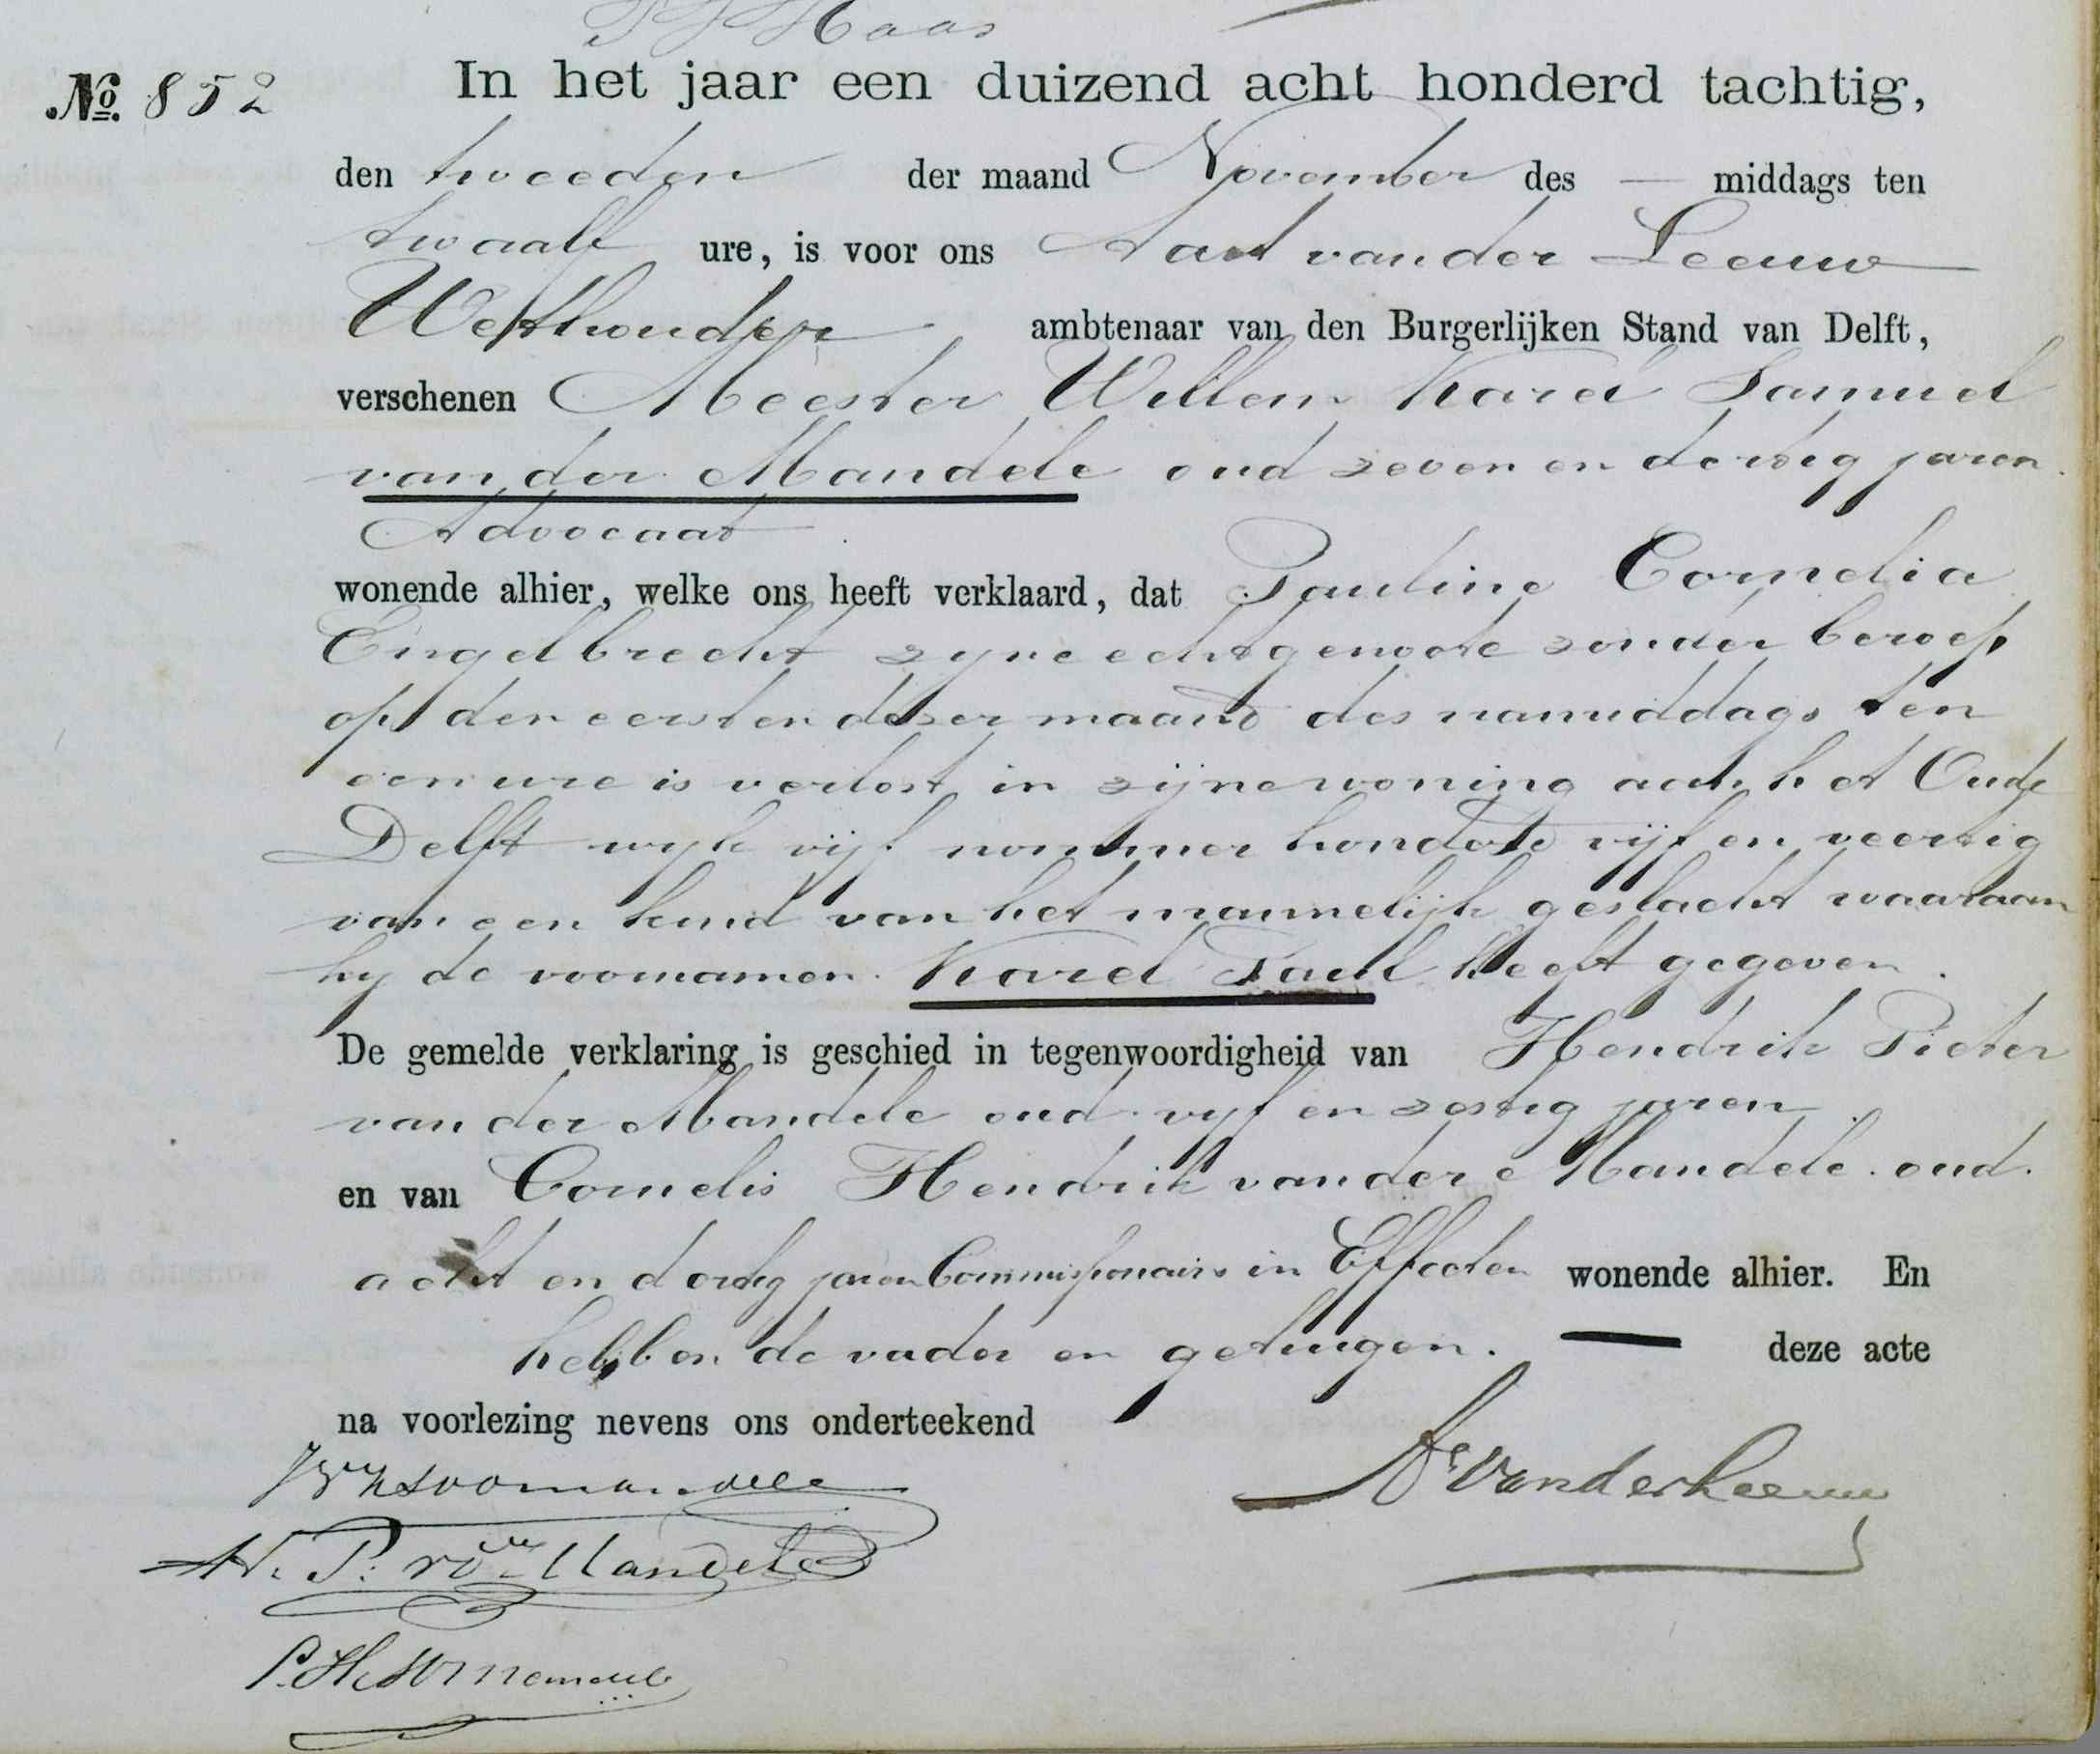 Haas
No. 852 In het jaar een duizend acht honderd tachtig,
den tweeden der maand November des — middags ten
twaalf ure, is voor ons Aart van der Leeuw
Wethouder ambtenaar van den Burgerlijken Stand van Delft,
verschenen Meester Willem Karel Samuel
van der Mandele oud zeven en dertig jaren
Advocaat
wonende alhier, welke ons heeft verklaard, dat Pauline Cornelia
Engelbrecht zyne echtgenoote zonder beroep
op den eersten dezer maand des namiddags ten
een ure is verlost in zijne woning aan het Oude
Delft wyk vijf nommer honderd vijf en veertig
van een kind van het mannelijk geslacht waaraan
hy de voornamen Karel Paul heeft gegeven.
De gemelde verklaring is geschied in tegenwoordigheid van Hendrik Pieter
van der Mandele oud vyf en zestig jaren
en van Cornelis Hendrik van der Mandele oud
acht en dertig jaren Commissionairs in Effecten wonende alhier. En
hebben de vader en getuigen. — deze acte
na voorlezing nevens ons onderteekend
A. van der Leeuw
H. P. vdr Mandele